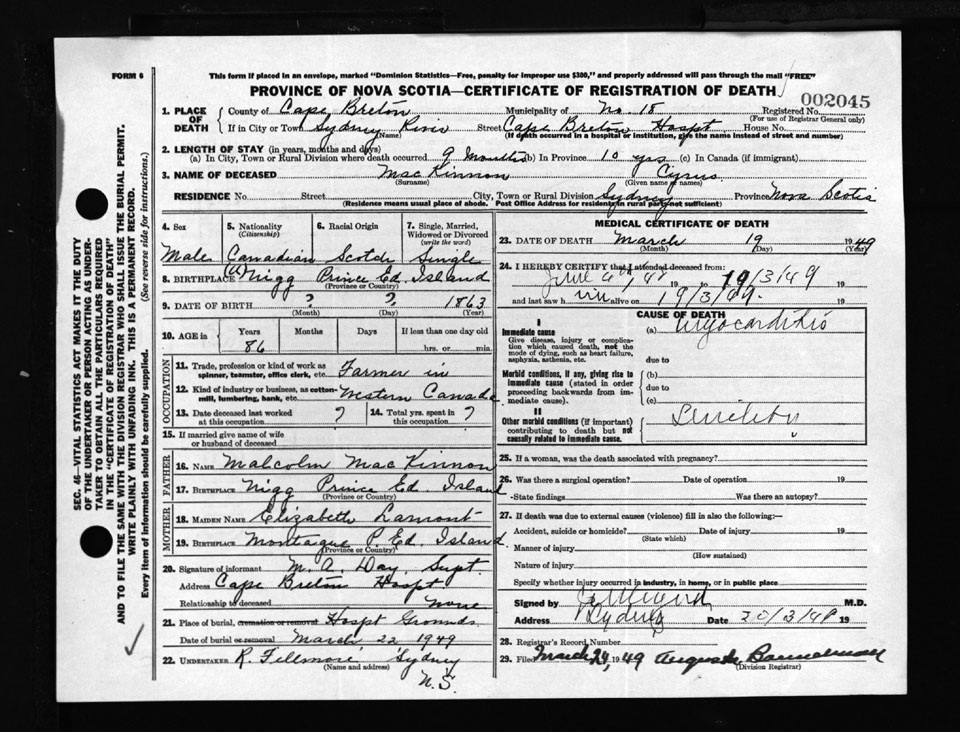 FORM 6
This form if placed in an envelope, marked "Dominion Statistics—Free, penalty for improper use $300," and properly addressed will pass through the mail "FREE"
PROVINCE OF NOVA SCOTIA—CERTIFICATE OF REGISTRATION OF DEATH
002045
1. PLACE OF DEATH
County of Cape Breton Municipality of No. 18 Registered No.
(For use of Registrar General only)
If in City or Town Sydney River Street Cape Breton Hospt House No.
(Name) (If death occurred in a hospital or institution, give the name instead of street and number)
2. LENGTH OF STAY (in years, months and days)
(a) In City, Town or Rural Division where death occurred 9 Months (b) In Province 10 yrs (c) In Canada (if immigrant)
3. NAME OF DECEASED MacKinnon Cyrus
(Surname) (Given name or names)
RESIDENCE No. Street City, Town or Rural Division Sydney Province Nova Scotia
(Residence means usual place of abode. Post Office Address for residents in rural parts not sufficient)
4. Sex 5. Nationality (Citizenship) 6. Racial Origin 7. Single, Married, Widowed or Divorced (write the word)
Male Canadian Scotch Single
8. BIRTHPLACE Nigg Prince Ed. Island
(Province or Country)
9. DATE OF BIRTH ? ? 1863
(Month) (Day) (Year)
10. AGE in Years Months Days If less than one day old
86 hrs. or min.
OCCUPATION
11. Trade, profession or kind of work as spinner, teamster, office clerk, etc. Farmer in
12. Kind of industry or business, as cotton-mill, lumbering, bank, etc. Western Canada
13. Date deceased last worked at this occupation ? 14. Total yrs. spent in this occupation ?
15. If married give name of wife or husband of deceased
FATHER
16. NAME Malcolm MacKinnon
17. BIRTHPLACE Nigg Prince Ed. Island
(Province or Country)
MOTHER
18. MAIDEN NAME Elizabeth Lamont
19. BIRTHPLACE Montague P. Ed. Island
(Province or Country)
20. Signature of informant M. A. Day, Supt.
Address Cape Breton Hospt
Relationship to deceased None
21. Place of burial, cremation or removal Hospt Grounds
Date of burial or removal March 22 1949
22. UNDERTAKER R. Fillmore Sydney
(Name and address)
N.S.
MEDICAL CERTIFICATE OF DEATH
23. DATE OF DEATH March 19 1949
(Month) (Day)
24. I HEREBY CERTIFY that I attended deceased from:
June 19 to 19/3/49 19
and last saw h im alive on 19/3/49. 19
CAUSE OF DEATH
I
Immediate cause (a) Myocarditis
Give disease, injury or complication which caused death, not the mode of dying, such as heart failure, asphyxia, asthenia, etc.
due to
Morbid conditions, if any, giving rise to immediate cause (stated in order proceeding backwards from immediate cause)
(b)
due to
(c)
II
Other morbid conditions (if important) contributing to death but not causally related to immediate cause.
Senility
25. If a woman, was the death associated with pregnancy?
26. Was there a surgical operation? Date of operation 19
State findings Was there an autopsy?
27. If death was due to external causes (violence) fill in also the following:—
Accident, suicide or homicide? Date of injury 19
(State which)
Manner of injury
(How sustained)
Nature of injury
Specify whether injury occurred in industry, in home, or in public place
Signed by M.D.
Address Sydney Date 19
28. Registrar's Record Number
29. Filed March 24, 1949 Bannerman
(Division Registrar)
SEC. 46—VITAL STATISTICS ACT MAKES IT THE DUTY
OF THE UNDERTAKER OR PERSON ACTING AS UNDER-
TAKER TO OBTAIN ALL THE PARTICULARS REQUIRED
IN THE "CERTIFICATE OF REGISTRATION OF DEATH"
AND TO FILE THE SAME WITH THE DIVISION REGISTRAR WHO SHALL ISSUE THE BURIAL PERMIT.
WRITE PLAINLY WITH UNFADING INK. THIS IS A PERMANENT RECORD.
Every item of information should be carefully supplied. (See reverse side for instructions.)